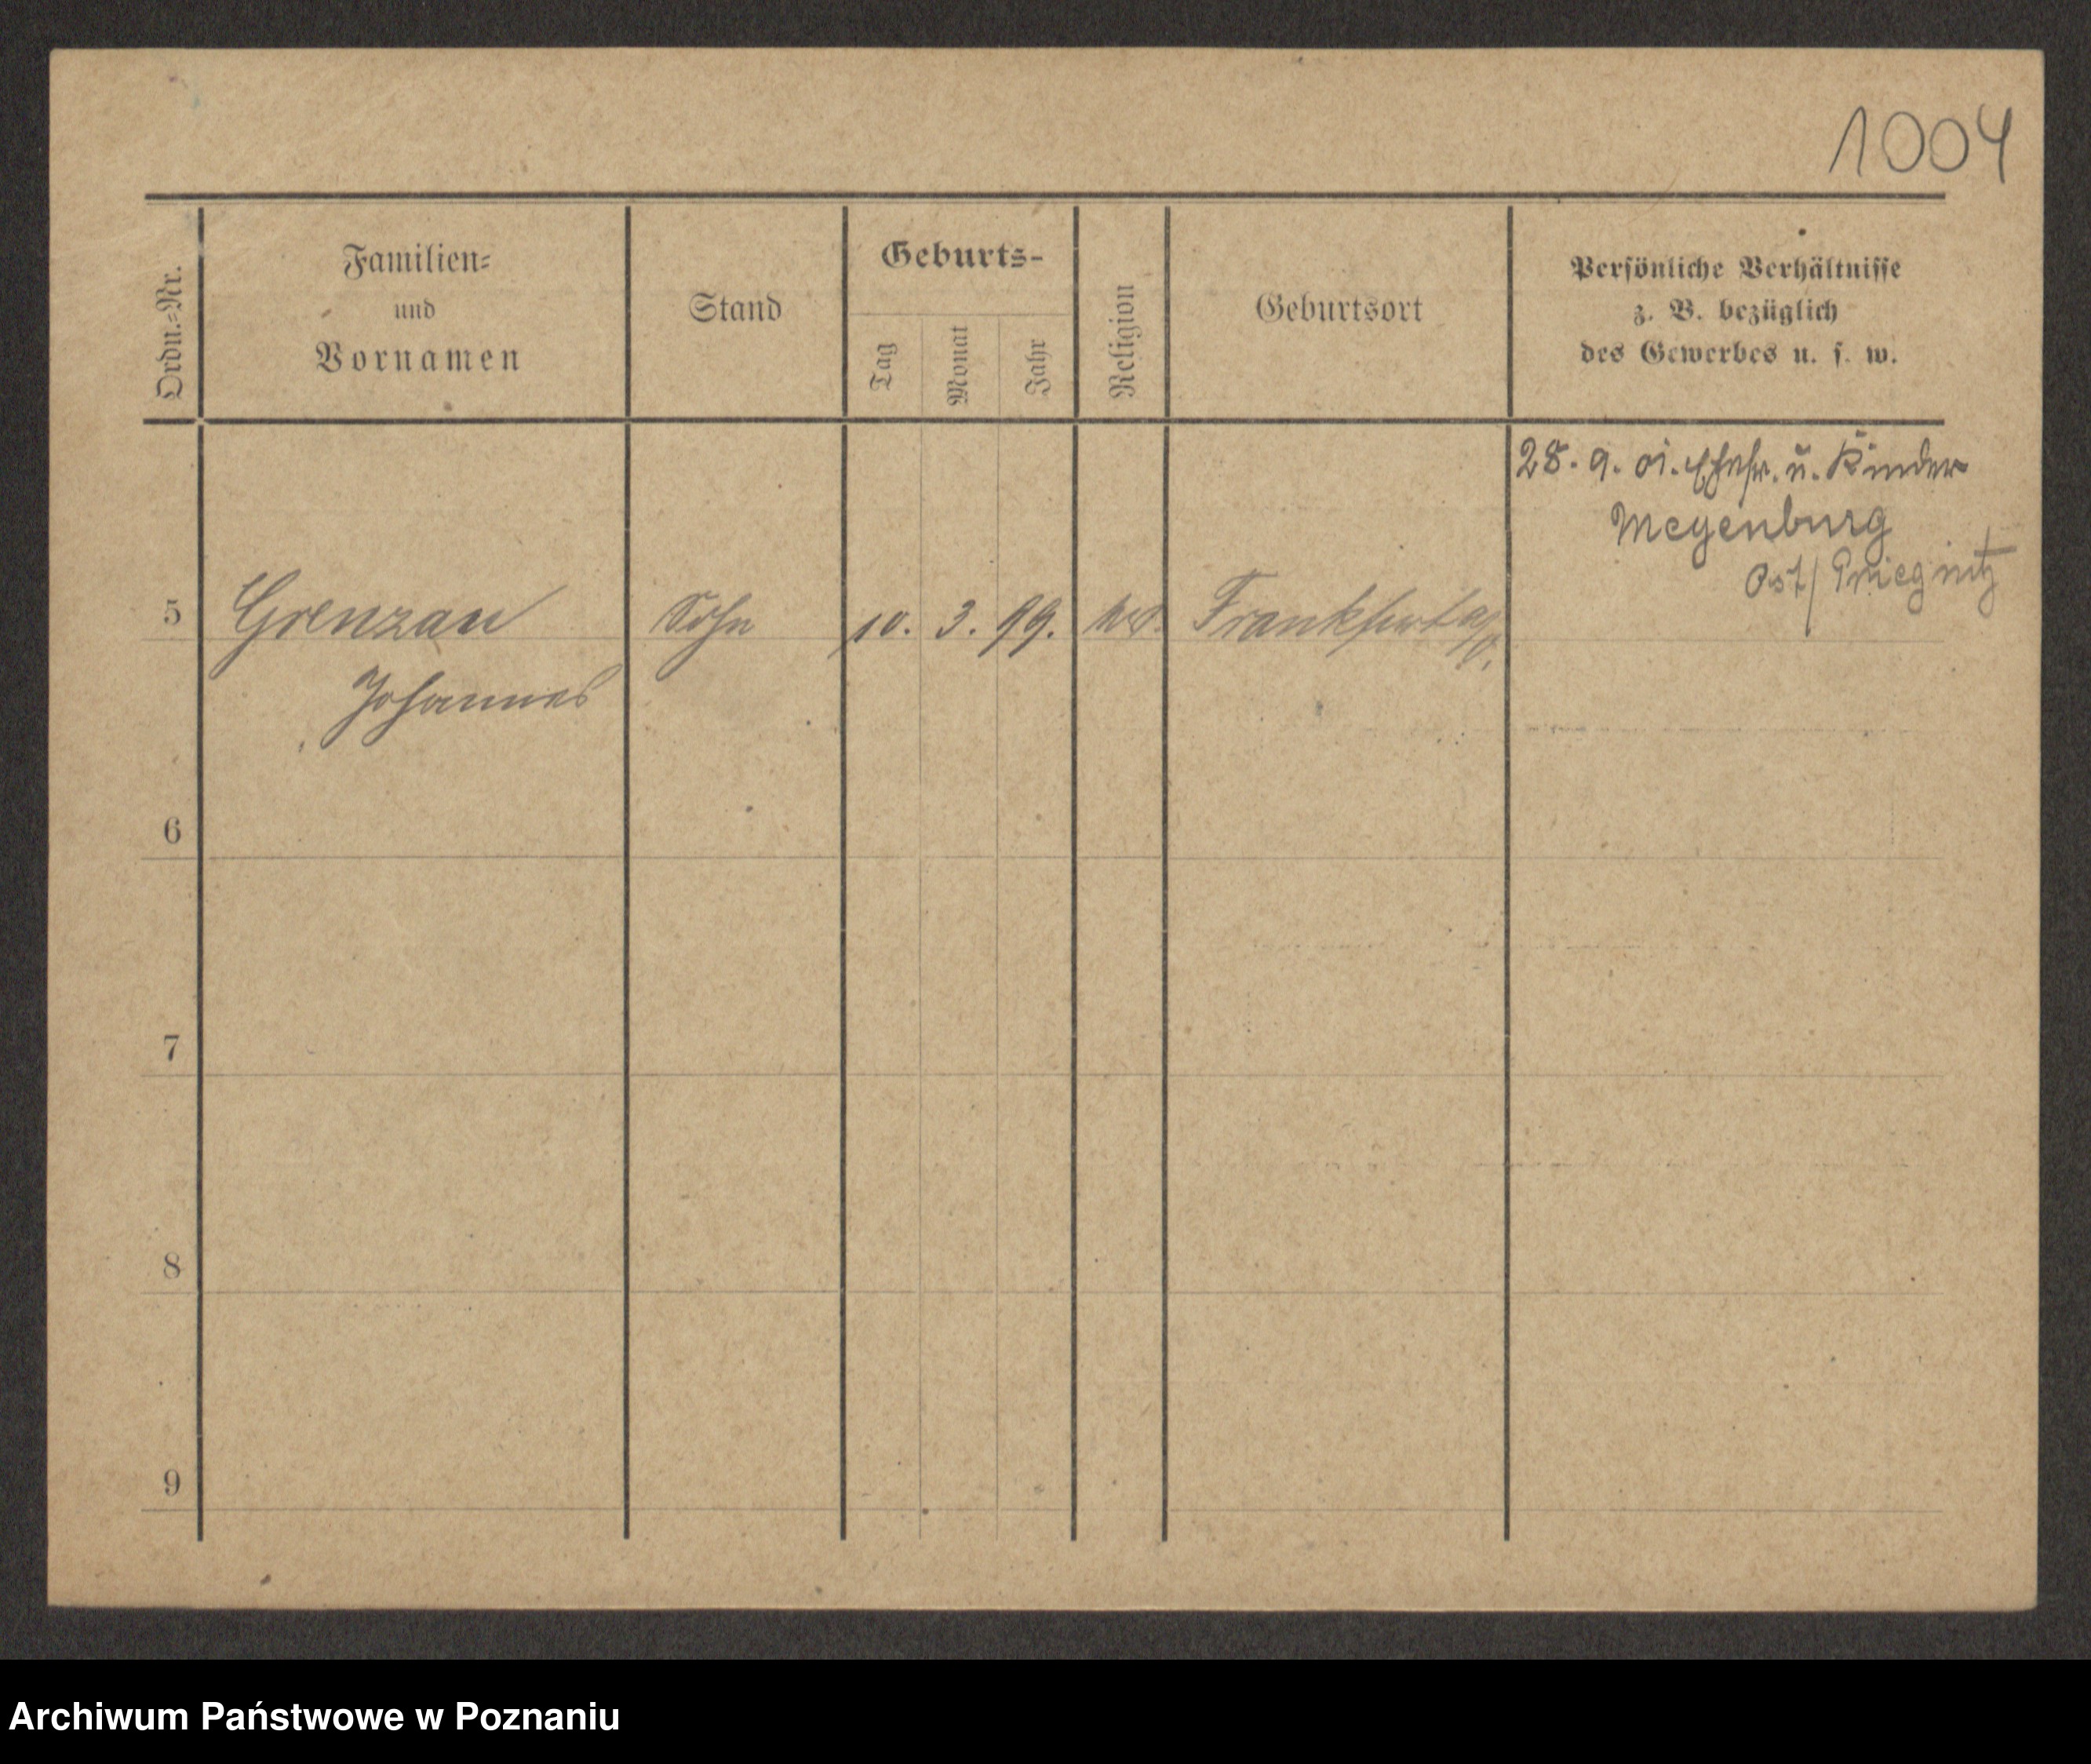 1004
Ordn.-Nr.
Familien-
und
Vornamen
Stand
Geburts-
Tag
Monat
Jahr
Religion
Geburtsort
Persönliche Verhältnisse
z. B. bezüglich
des Gewerbes u. s. w.
28. 9. 01. Ehefr. u. Kinder
Meyenburg
Ost/Priegnitz
5 Grenzau Sohn 10. 3. 99. Frankfurt a/O.
Johannes
6
7
8
9
Archiwum Państwowe w Poznaniu